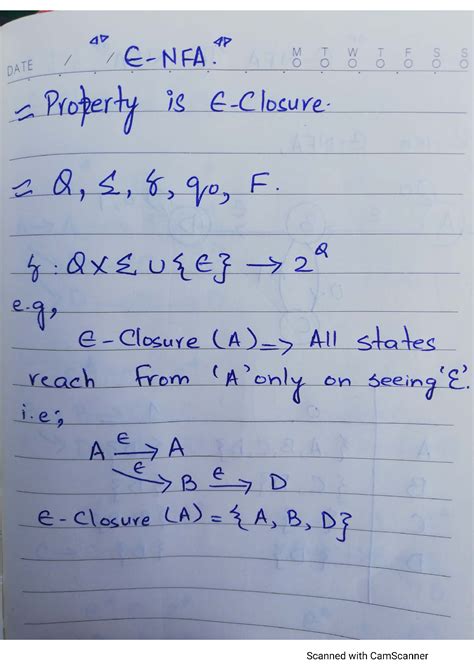 DATE / / ∈-NFA. M T W T F S S
= Property is ∈-Closure.
= Q, Σ, δ, q0, F.
δ : Q X Σ ∪ {∈} → 2^Q
e.g,
∈-Closure (A) => All states
reach from 'A' only on seeing 'Ɛ'.
i.e;
A —∈→ A
—∈→ B —∈→ D
∈-Closure (A) = {A, B, D}
Scanned with CamScanner